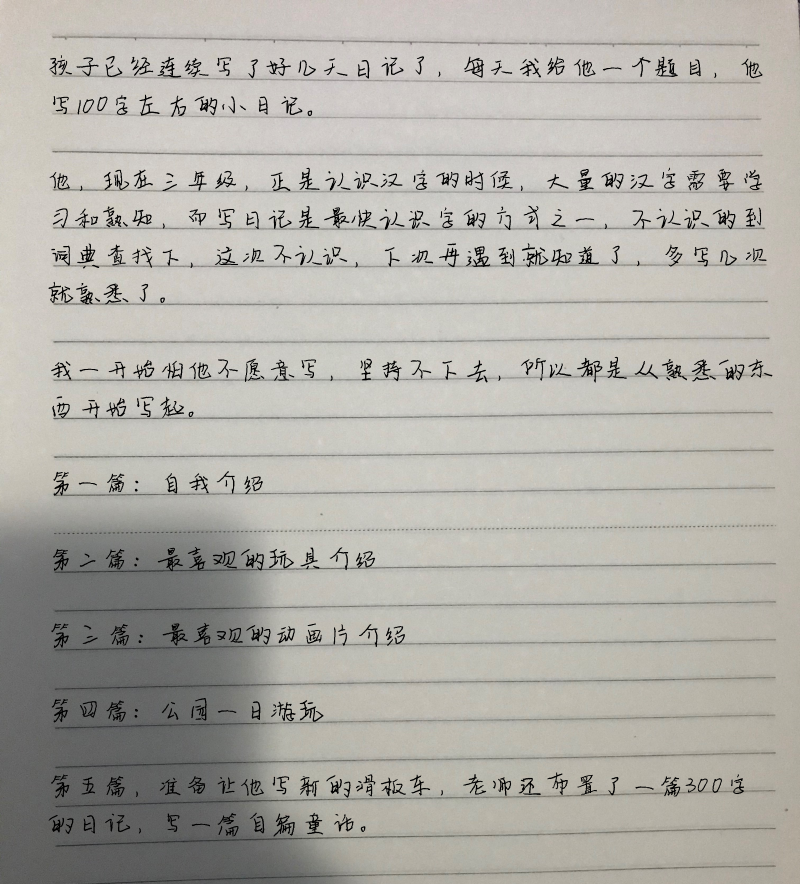 孩子已经连续写了好几天日记了，每天我给他一个题目，他
写100字左右的小日记。
他，现在三年级，正是认识汉字的时候，大量的汉字需要学
习和熟知，而写日记是最快认识字的方式之一，不认识的到
词典查找下，这次不认识，下次再遇到就知道了，多写几次
就熟悉了。
我一开始怕他不愿意写，坚持不下去，所以都是从熟悉的东
西开始写起。
第一篇：自我介绍
第二篇：最喜观的玩具介绍
第三篇：最喜观的动画片介绍
第四篇：公园一日游玩
第五篇，准备让他写新的滑板车，老师还布置了一篇300字
的日记，写一篇自编童话。